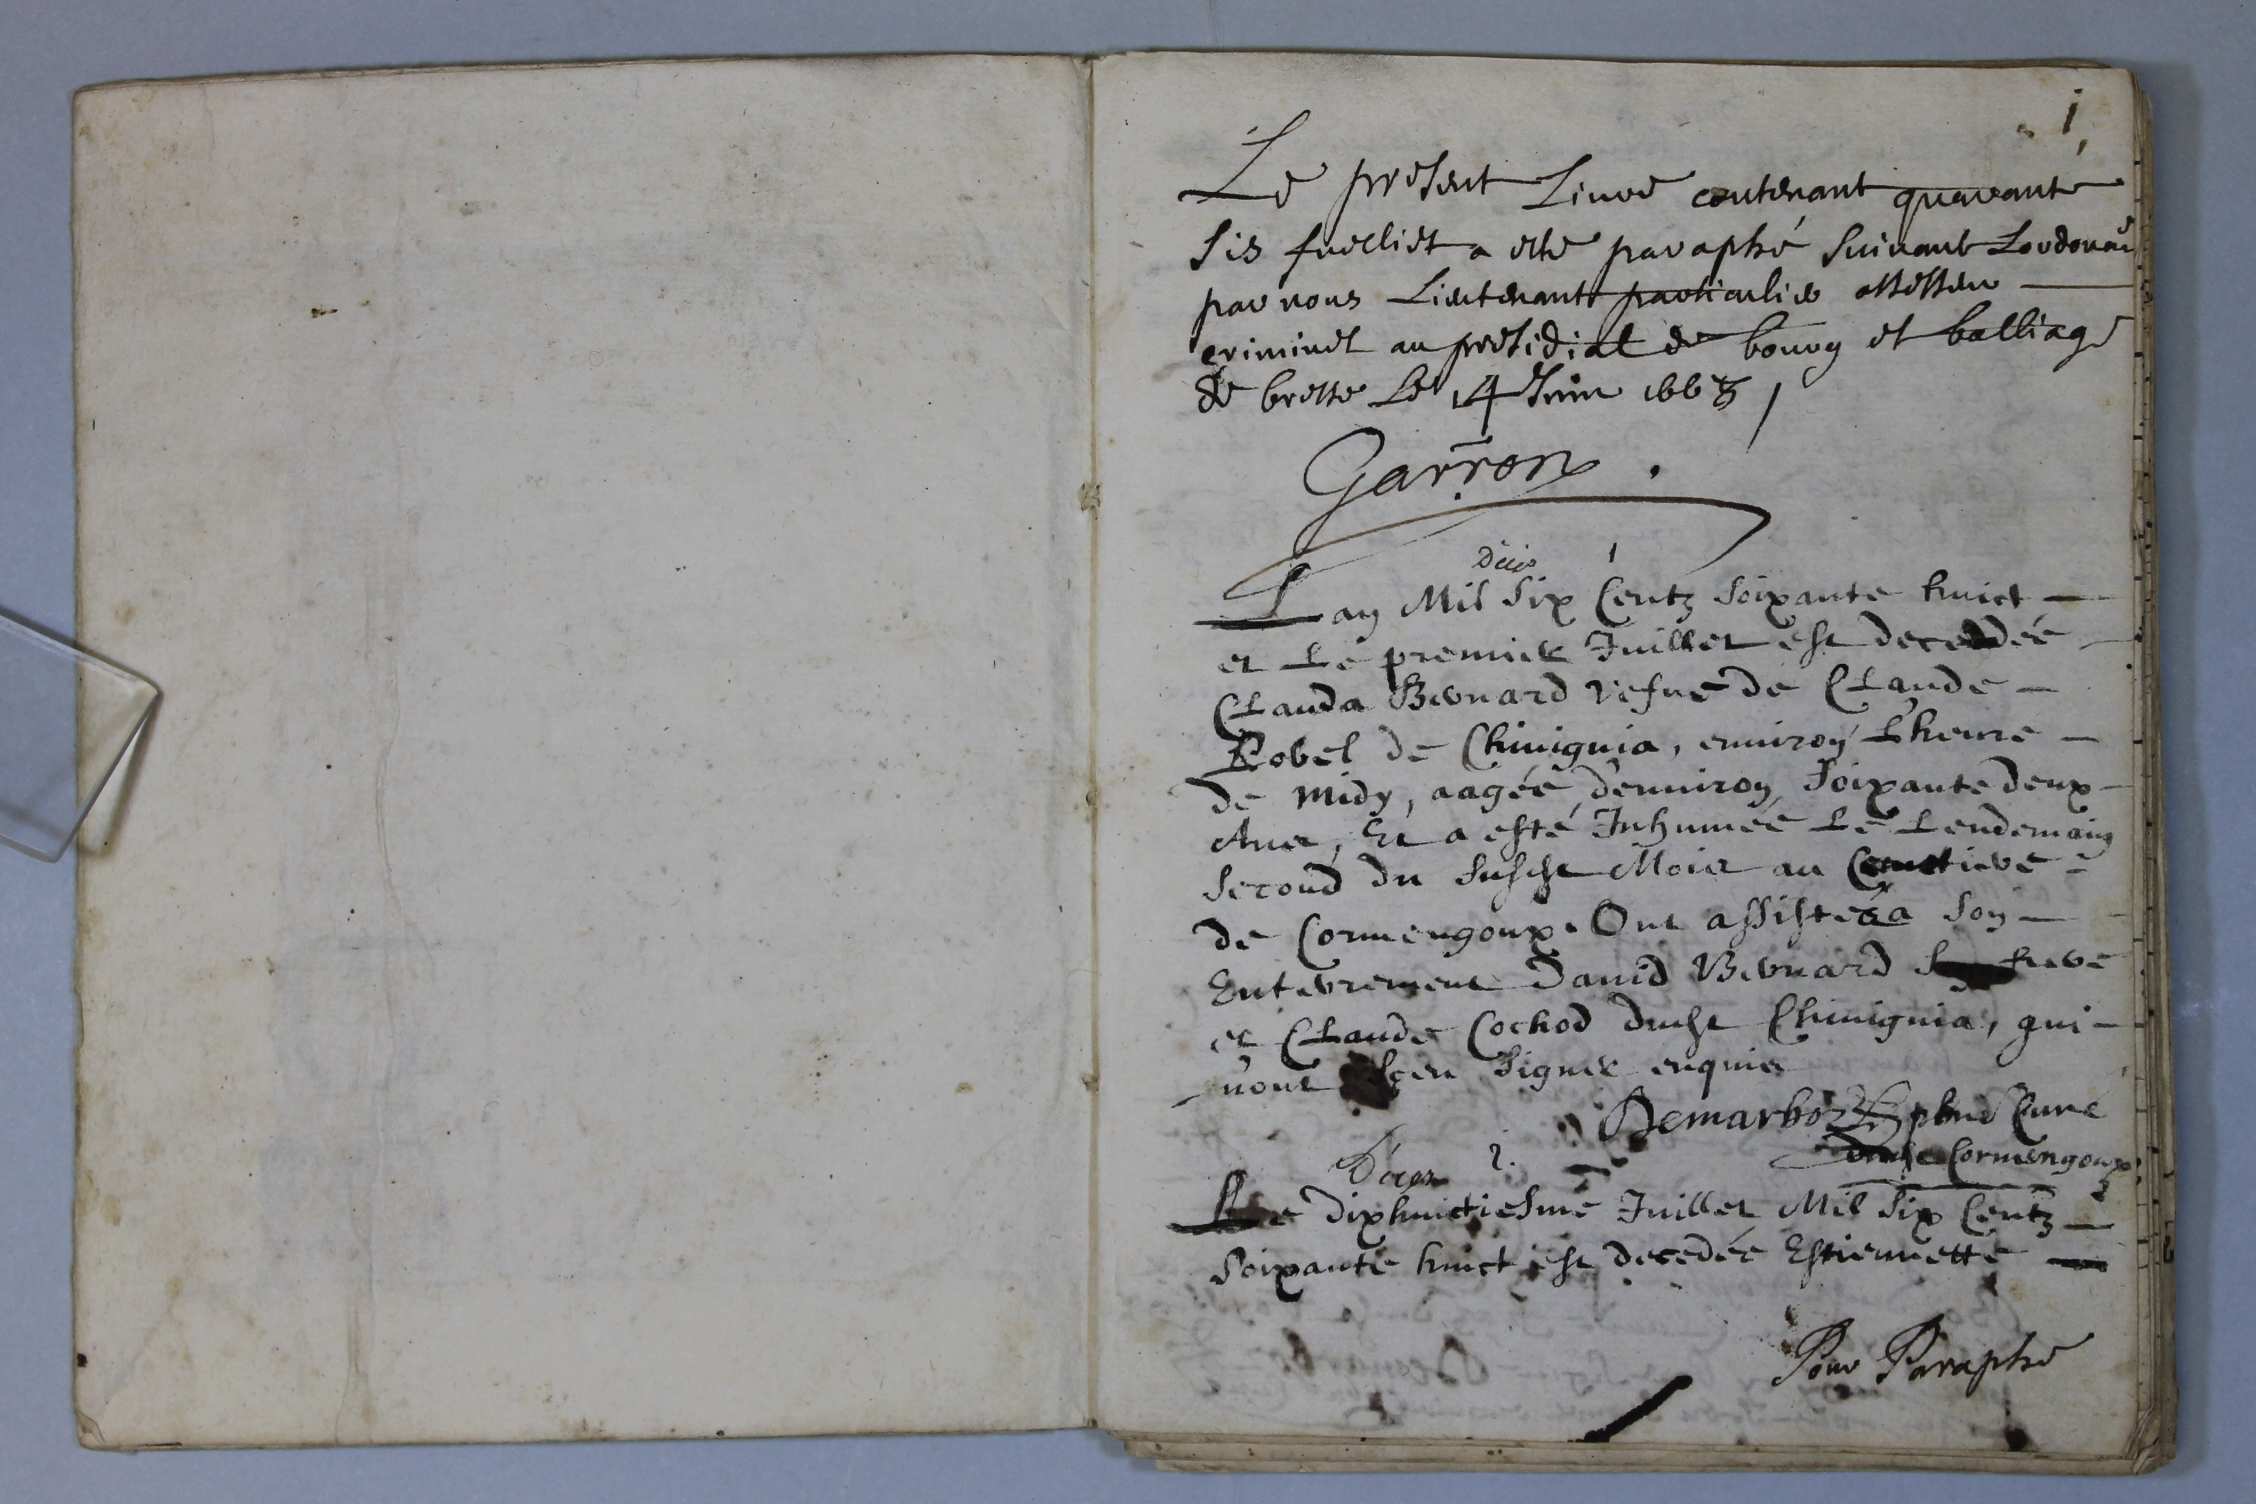 1
Le present Liure contenant quarante
sis fuelliet a esté paraphé suiuant Lordonnan
par nous Lieutenant particulier assesseur
criminel au presidial de bourg et balliage
de bresse Le 14 Juin 1668
Garron.
Déces 1
Lan Mil six Centz soixante huict
et Le premier Juillet est decedée
Clauda Bernard vefue de Claude
Robel de Chiuignia, enuiron L'heure
de midy, aagée denuiron soixante deux
Ans, Et a esté Inhumée Le Lendemain
second du susdt Mois au Cemetiere
de Cormengoux. Ont assisté a son
Enterrement Dauid Bernard son frere
et Claude Cochod dudt Chiuignia, qui
nont sçeu signer enquis
Demarboz pbre Curé
dudt Cormengoux
Déces 2.
Le dixhuictiesme Juillet Mil six Centz
soixante huict est decedée Estiennette
Pour Paraphe